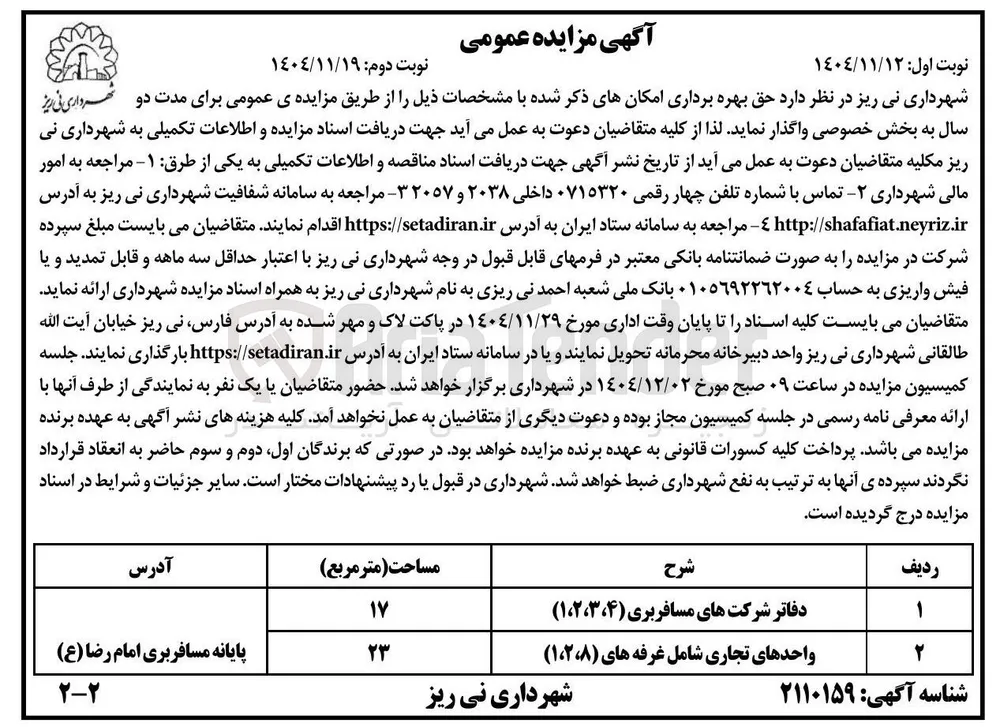 آگهی مزایده عمومی
نوبت اول: ۱۴۰۴/۱۱/۱۲
نوبت دوم: ۱۴۰۴/۱۱/۱۹
شهرداری نی ریز
شهرداری نی ریز در نظر دارد حق بهره برداری امکان های ذکر شده با مشخصات ذیل را از طریق مزایده ی عمومی برای مدت دو
سال به بخش خصوصی واگذار نماید. لذا از کلیه متقاضیان دعوت به عمل می آید جهت دریافت اسناد مزایده و اطلاعات تکمیلی به شهرداری نی
ریز مکلیه متقاضیان دعوت به عمل می آید از تاریخ نشر آگهی جهت دریافت اسناد مناقصه و اطلاعات تکمیلی به یکی از طرق: ۱- مراجعه به امور
مالی شهرداری ۲- تماس با شماره تلفن چهار رقمی ۰۷۱۵۳۲۰ داخلی ۲۰۳۸ و ۲۰۵۷ ۳- مراجعه به سامانه شفافیت شهرداری نی ریز به آدرس
http://shafafiat.neyriz.ir ۴- مراجعه به سامانه ستاد ایران به آدرس https://setadiran.ir اقدام نمایند. متقاضیان می بایست مبلغ سپرده
شرکت در مزایده را به صورت ضمانتنامه بانکی معتبر در فرمهای قابل قبول در وجه شهرداری نی ریز با اعتبار حداقل سه ماهه و قابل تمدید و یا
فیش واریزی به حساب ۰۱۰۵۶۹۲۲۶۲۰۰۴ بانک ملی شعبه احمد نی ریزی به نام شهرداری نی ریز به همراه اسناد مزایده شهرداری ارائه نماید.
متقاضیان می بایست کلیه اسناد را تا پایان وقت اداری مورخ ۱۴۰۴/۱۱/۲۹ در پاکت لاک و مهر شده به آدرس فارس، نی ریز خیابان آیت الله
طالقانی شهرداری نی ریز واحد دبیرخانه محرمانه تحویل نمایند و یا در سامانه ستاد ایران به آدرس https://setadiran.ir بارگذاری نمایند. جلسه
کمیسیون مزایده در ساعت ۰۹ صبح مورخ ۱۴۰۴/۱۲/۰۲ در شهرداری برگزار خواهد شد. حضور متقاضیان یا یک نفر به نمایندگی از طرف آنها با
ارائه معرفی نامه رسمی در جلسه کمیسیون مجاز بوده و دعوت دیگری از متقاضیان به عمل نخواهد آمد. کلیه هزینه های نشر آگهی به عهده برنده
مزایده می باشد. پرداخت کلیه کسورات قانونی به عهده برنده مزایده خواهد بود. در صورتی که برندگان اول، دوم و سوم حاضر به انعقاد قرارداد
نگردند سپرده ی آنها به ترتیب به نفع شهرداری ضبط خواهد شد. شهرداری در قبول یا رد پیشنهادات مختار است. سایر جزئیات و شرایط در اسناد
مزایده درج گردیده است.
ردیف شرح مساحت(مترمربع) آدرس
۱ دفاتر شرکت های مسافربری (۱،۲،۳،۴) ۱۷
۲ واحدهای تجاری شامل غرفه های (۱،۲،۸) ۲۳ پایانه مسافربری امام رضا (ع)
شناسه آگهی: ۲۱۱۰۱۵۹ شهرداری نی ریز ۲-۲
AriaTender